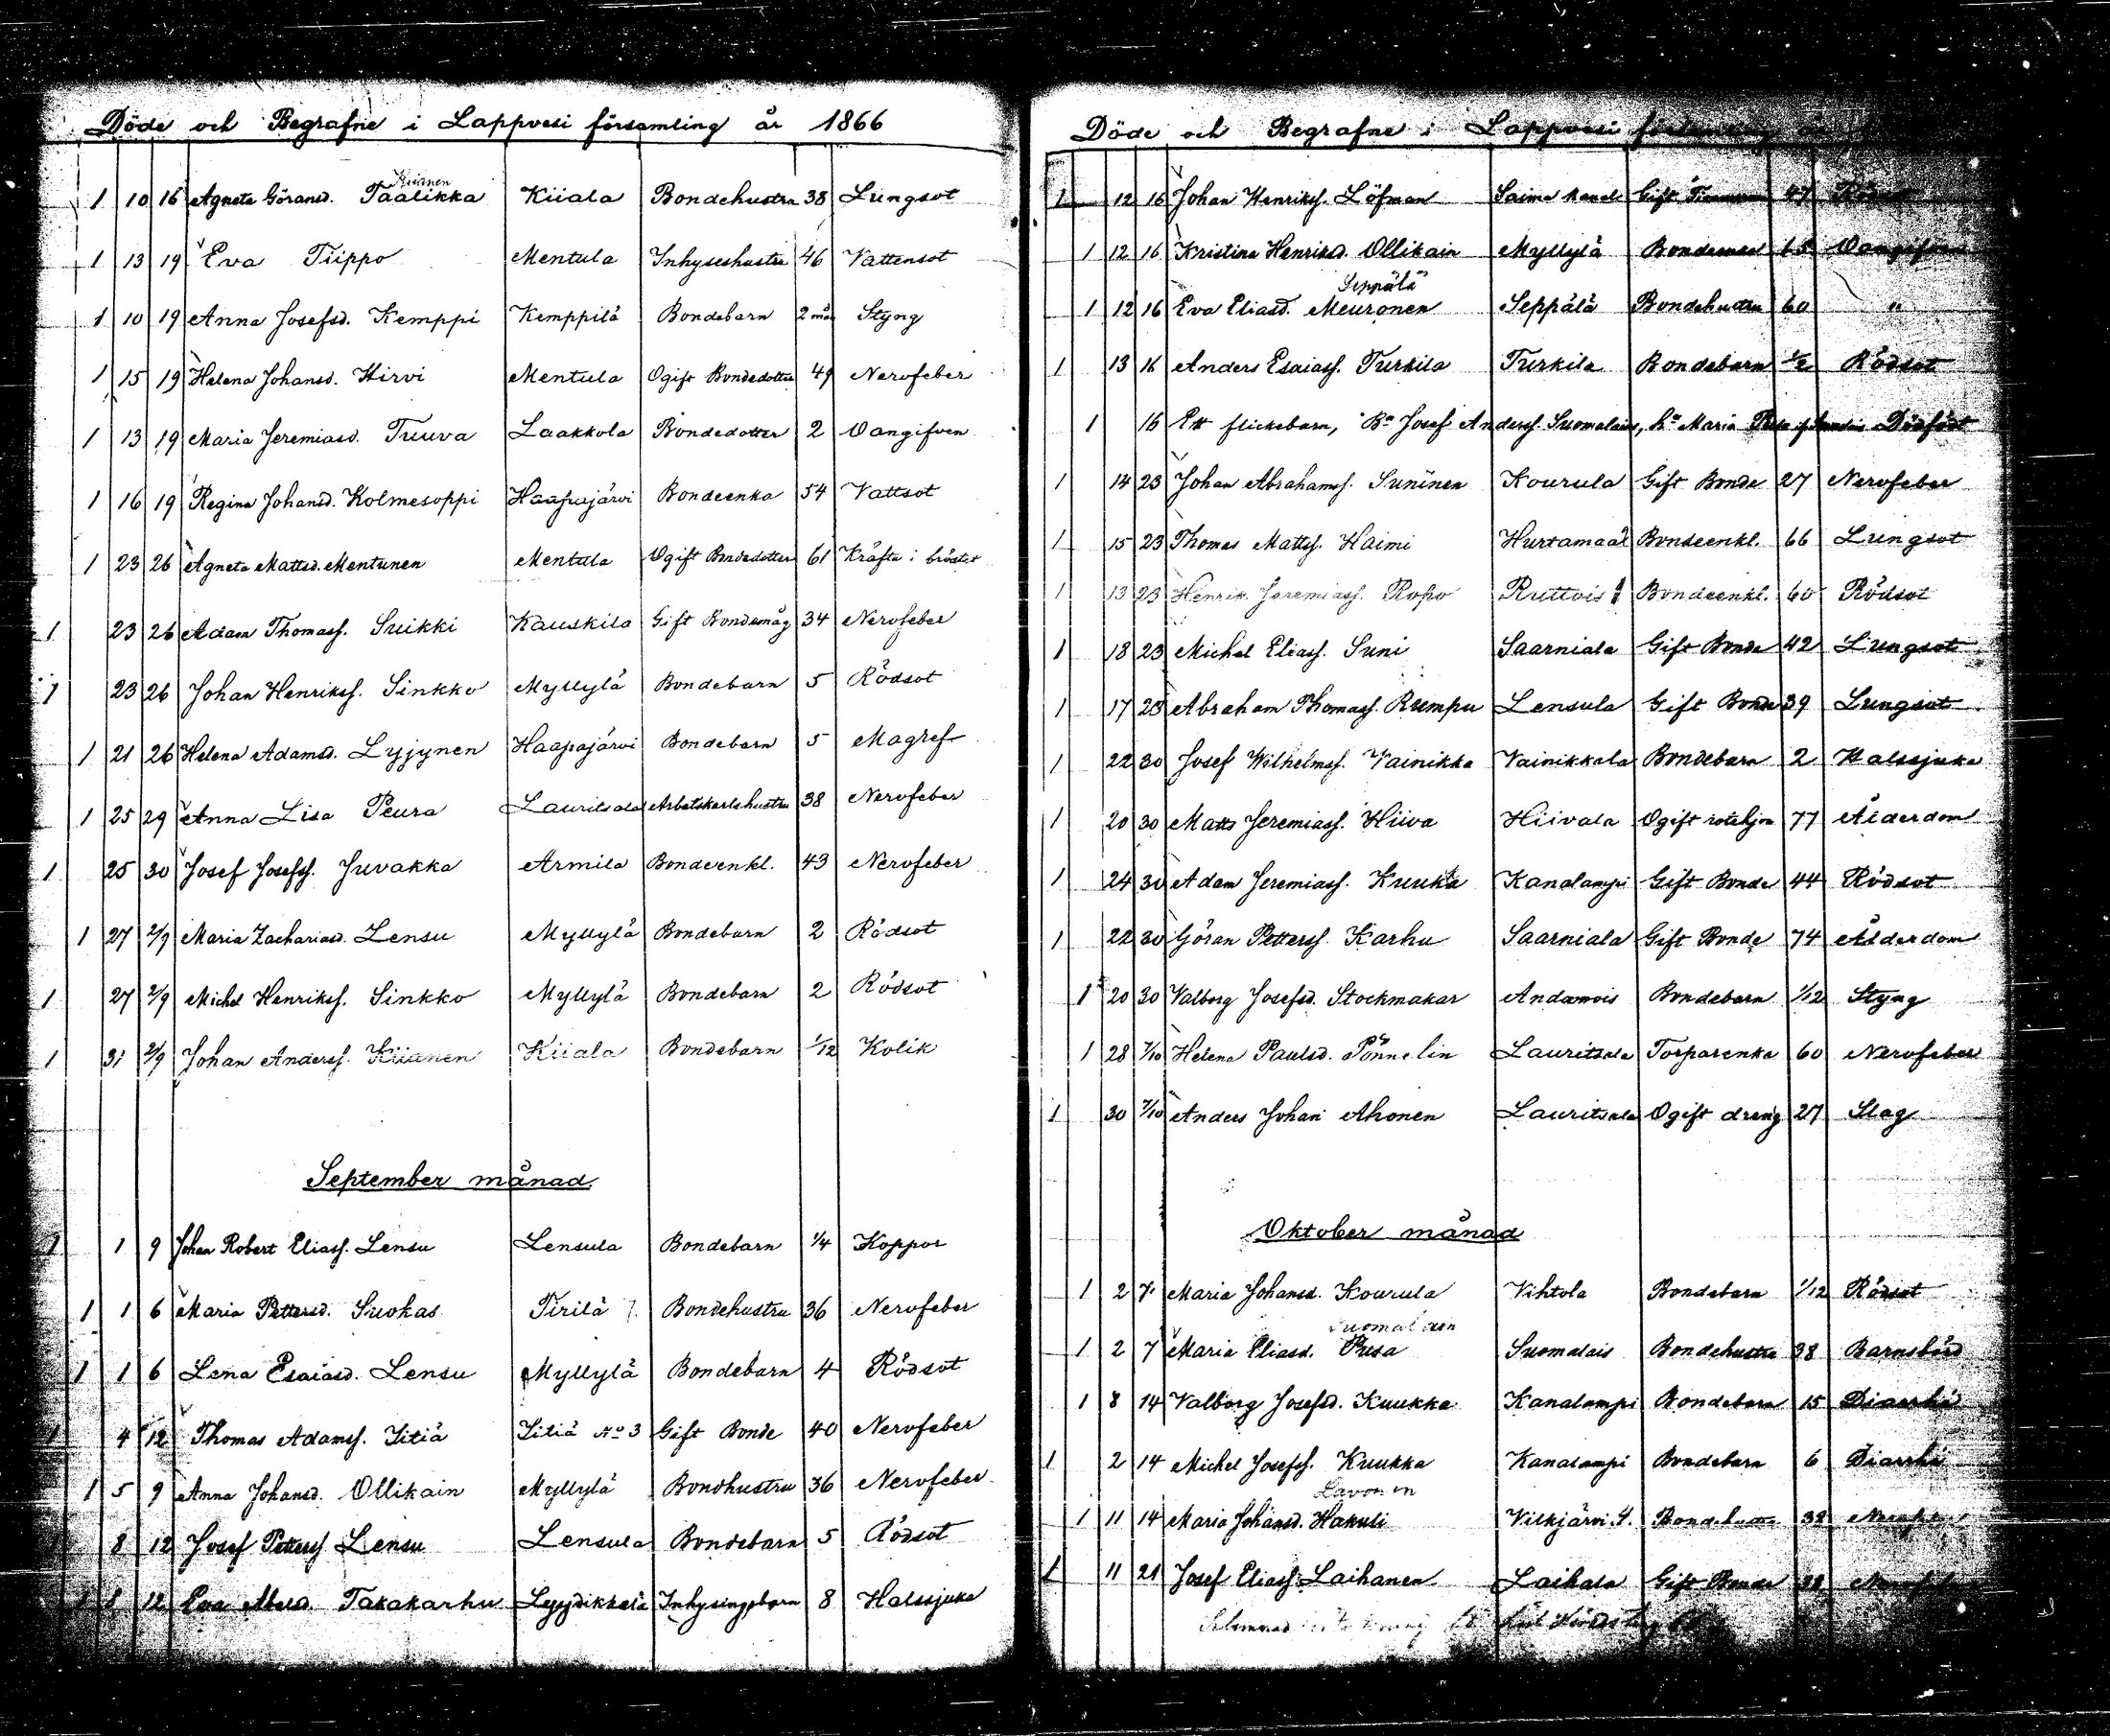 Döde och Begrafne i Lappvesi församling år 1866
Kiianen
1 10 16 Agneta Göransd. Taalikka Kiiala Bondehustru 38 Lungsot
1 13 19 Eva Tiippo Mentula Inhyseshustru 46 Vattensot
1 10 19 Anna Josefsd. Kemppi Kemppilä Bondebarn 2 mån Styng
1 15 19 Helena Johansd. Hirvi Mentula Ogift Bondedotter 49 Nervfeber
1 13 19 Maria Jeremiasd. Tuuva Laakkola Bondedotter 2 Oangifven
1 16 19 Regina Johansd. Kolmesoppi Haapajärvi Bondeenka 54 Vattsot
1 23 26 Agneta Mattsd. Mentunen Mentula Ogift Bondedotter 61 Kräfta i bröstet
1 23 26 Adam Thomass. Suikki Kauskila Gift Bondemåg 34 Nervfeber
1 23 26 Johan Henrikss. Sinkko Myllylä Bondebarn 5 Rödsot
1 21 26 Helena Adamsd. Lyjynen Haapajärvi Bondebarn 5 Magref
1 25 29 Anna Lisa Peura Lauritsala Arbetskarlshustru 38 Nervfeber
1 25 30 Josef Josefss. Juvakka Armila Bondeenkl. 43 Nervfeber
1 27 2/9 Maria Zachariasd. Lensu Myllylä Bondebarn 2 Rödsot
1 27 2/9 Michel Henrikss. Sinkko Myllylä Bondebarn 2 Rödsot
1 31 2/9 Johan Anderss. Kiianen Kiiala Bondebarn 1/12 Kolik
September månad
1 1 9 Johan Robert Eliass. Lensu Lensula Bondebarn 1/4 Koppor
1 1 6 Maria Pettersd. Suokas Tirilä Bondehustru 36 Nervfeber
1 1 6 Lena Esaiasd. Lensu Myllylä Bondebarn 4 Rödsot
1 4 12 Thomas Adamss. Itiä Itiä No 3 Gift Bonde 40 Nervfeber
1 5 9 Anna Johansd. Ollikain Myllylä Bondhustru 36 Nervfeber
8 12 Josef Petterss. Lensu Lensula Bondebarn 5 Rödsot
1 8 12 Eva Abelsd. Takakarhu Lyydikkälä Inhysingsbarn 8 Halssjuka
Döde och Begrafne i Lappvesi församling
1 12 16 Johan Henrikss. Löfman Saima kanal Gift 47
1 12 16 Kristina Henriksd. Ollikain Myllylä Bondeenka 65 Oangifven
Seppälä
1 12 16 Eva Eliasd. Meuronen Seppälä Bondehustru 60 "
1 13 16 Anders Esaiass. Turkila Turkila Bondebarn 1/2 Rödsot
1 16 Ett flickebarn, Bn Josef Anderss. Suomalais, ha Maria Pusa Dödfödt
1 14 23 Johan Abrahams. Suninen Kourula Gift Bonde 27 Nervfeber
1 15 23 Thomas Matts. Haimi Hurtamaal Bondeenkl. 66 Lungsot
1 13 23 Henrik Jeremiass. Ropo Ruttois Bondeenkl. 60 Rödsot
1 18 23 Michel Eliass. Suni Saarniala Gift Bonde 42 Lungsot
1 17 23 Abraham Thomass. Rumpu Lensula Gift Bonde 39 Lungsot
1 22 30 Josef Wilhelmss. Vainikka Vainikkala Bondebarn 2 Halssjuka
1 20 30 Matts Jeremiass. Hiiva Hiivala Ogift rotehjon 77 Ålderdom
1 24 30 Adam Jeremiass. Kuuka Kanalampi Gift Bonde 44 Rödsot
1 22 30 Göran Petterss. Karhu Saarniala Gift Bonde 74 Ålderdom
1 20 30 Valborg Josefsd. Stockmakar Andamois Bondebarn 1/12 Styng
1 28 7/10 Helena Paulsd. Pönnelin Lauritsala Torparenka 60 Nervfeber
1 30 7/10 Anders Johan Ahonen Lauritsala Ogift dräng 27 Slag
Oktober månad
1 2 7 Maria Johansd. Kourula Vihtola Bondebarn 1/12 Rödsot
Suomalainen
1 2 7 Maria Eliasd. Pusa Suomalais Bondehustru 38 Barnsbörd
1 8 14 Valborg Josefsd. Kuukka Kanalampi Bondebarn 15 Diarrhé
1 2 14 Michel Josefss. Kuukka Kanalampi Bondebarn 6 Diarrhé
Lavonen
1 11 14 Maria Johansd. Hakuli Vilkjärvi Bondehustru 32
1 11 21 Josef Eliass. Laihanen Laihala Gift Bonde 32